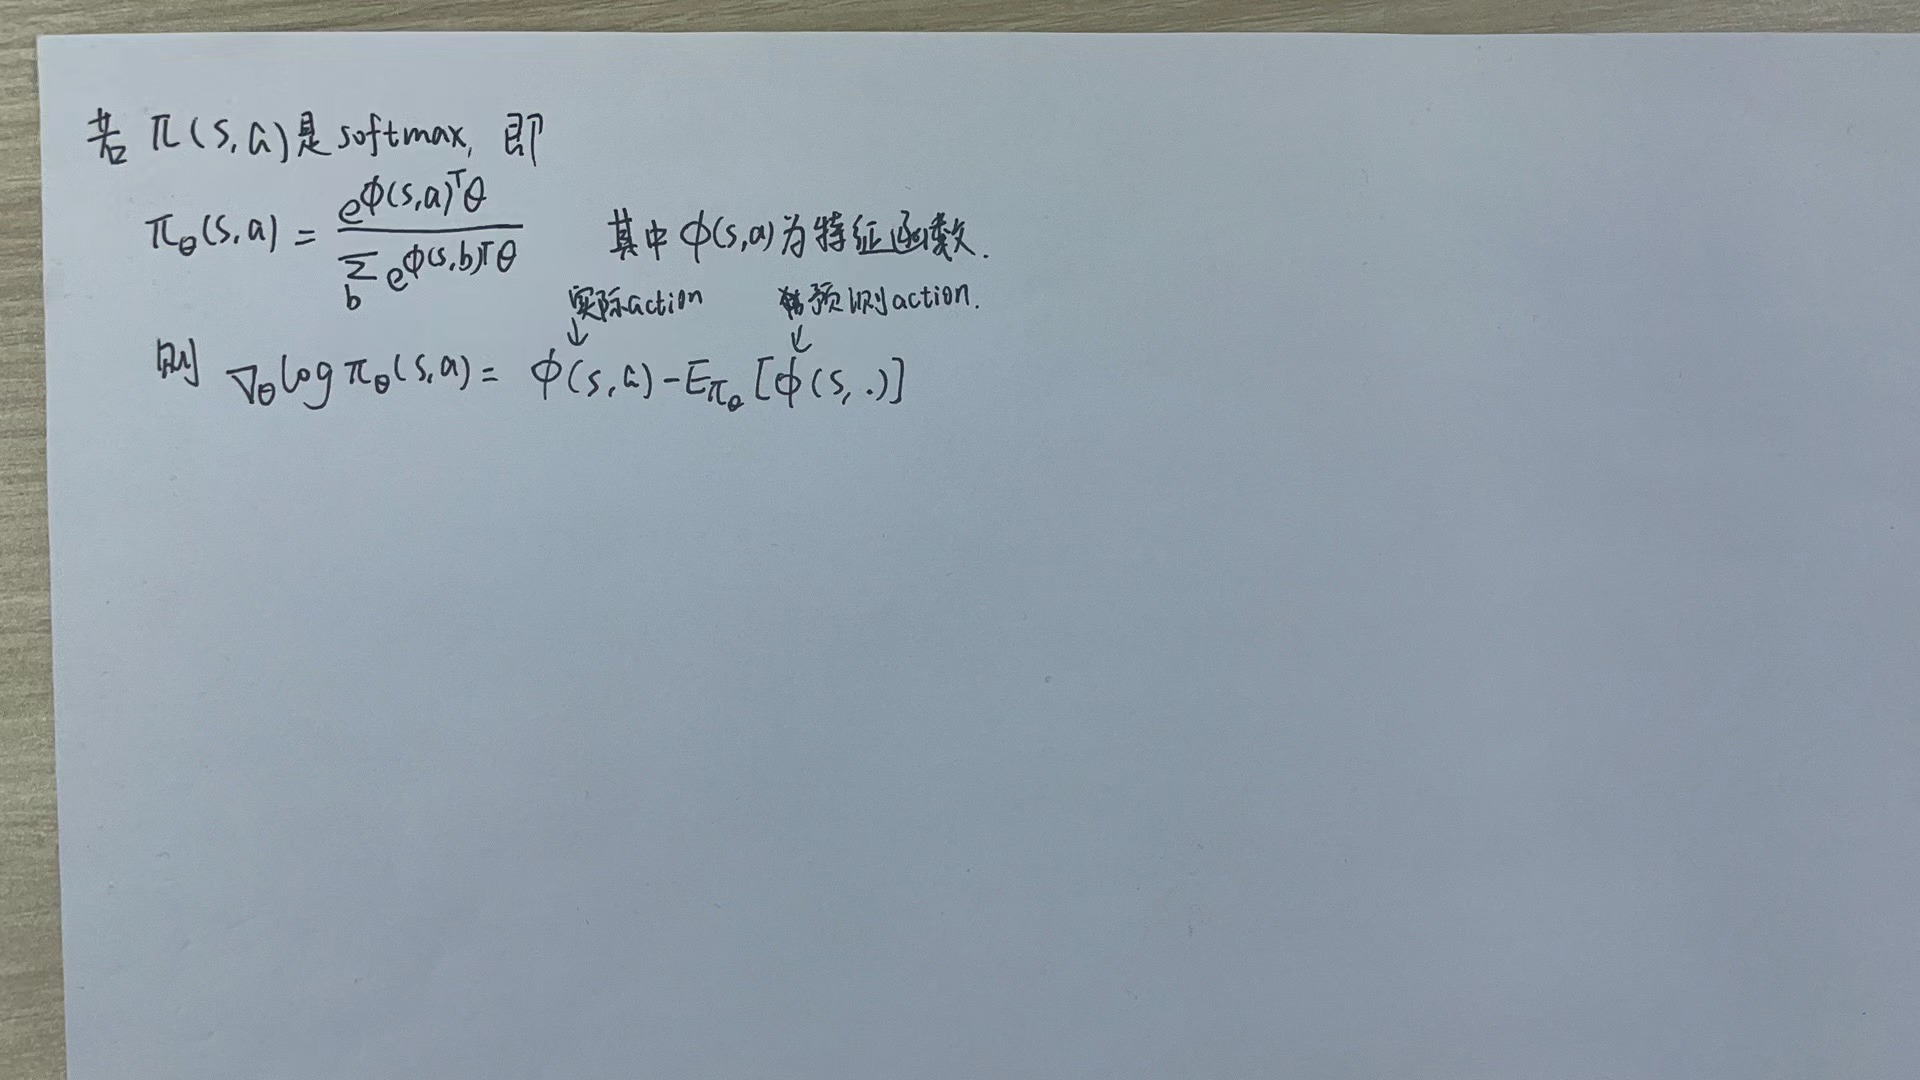 若 π(s,a)是softmax, 即
π_θ(s,a) = e^{ϕ(s,a)^T θ} / Σ_b e^{ϕ(s,b)^T θ} 其中 ϕ(s,a)为特征函数.
实际action 预测action.
↓ ↓
则 ∇_θ log π_θ(s,a) = ϕ(s,a) - E_{π_θ}[ϕ(s,.)]